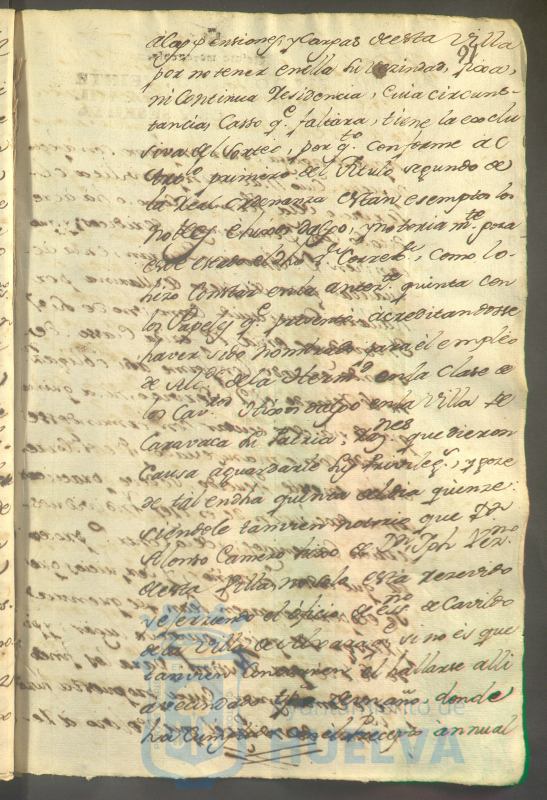 91
a las pensiones, y Cargas de esta Villa
por no tener en ella su vezindad, fixa,
ni Continua Residencia, Cuia circuns-
tancia, Casso qe. faltara, tiene la exclu
siva del Sorteo, por qto. conforme al
primero del Titulo segundo de
la Real Ordenanza estan exemptos los
nobles e hijos dalgo, y notoriamte. goza
este estado el dho Correxr., como lo
hizo Constar en la anterr. quinta con
los Papeles qe. presentó acreditandosse
haver sido nombrado para el empleo
de Alde. de la Hermd. en la Clase de
los Cavros. Hixos dalgo en la Villa de
Caravaca su Patria; Razones que dieron
Causa a guardarle sus Privilegs., y goze
de tal en dha quinta del dia quinze:
siendole tamvien notorio que Dn.
Alonso Camero hixo de Dn. Jph Vezno.
de esta Villa, no sola esta
sirviendo el oficio de essno. de Cavildo
de la Villa de si no es que
tamvien el hallarse alli
avezindado donde
ha cumplido con el Precepto annual
Ayuntamiento de
HUELVA